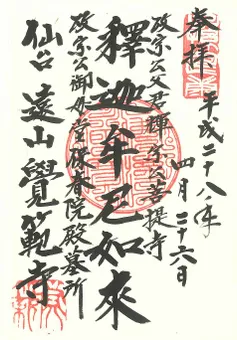 奉拝
平成二十八年
四月二十六日
政宗公父君輝宗公菩提寺
釋迦牟尼如來
政宗公御母堂保春院殿墓所
仙台 遠山覺範寺